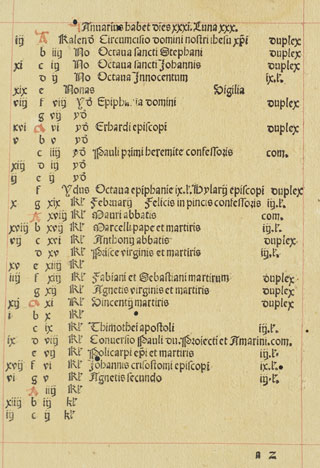 Januarius habet dies xxxi. Luna xxx.
iij A Kalend Circumcisio domini nostri ihesu xpi duplex
b iiij No Octaua sancti Stephani duplex
xi c iij No Octaua sancti Johannis duplex
d ij No Octaua Innocentum ix.l.
xix e Nonas Vigilia
viij f viij Yd Epiphania domini duplex
g vij Yd
xvi A vi Yd Erhardi episcopi duplex
v b v Yd
c iiij Yd Pauli primi heremite confessoris com.
xiij d iij Yd
ij e ij Yd
f Ydus Octaua epiphanie ix.l. Hylarij episcopi duplex
x g xix Kl' Februarij Felicis in pincis confessoris iij.l.
A xviij Kl' Mauri abbatis com.
xviij b xvij Kl' Marcelli pape et martiris iij.l.
vij c xvi Kl' Anthonij abbatis duplex
d xv Kl' Prisce virginis et martiris iij.l.
xv e xiiij Kl'
iiij f xiij Kl' Fabiani et Sebastiani martirum duplex
g xij Kl' Agnetis virginis et martiris duplex
xij A xi Kl' Vincentij martiris duplex
i b x Kl'
c ix Kl' Thimothei apostoli iij.l.
ix d viij Kl' Conuersio Pauli du. Proiecti et Amarini. com.
e vij Kl' Policarpi epi et martiris iij.l.
xvij f vi Kl' Johannis crisostomi episcopi ix.l.
vi g v Kl' Agnetis secundo iij.l.
A iiij Kl'
xiiij b iij Kl'
iij c ij Kl'
a 2